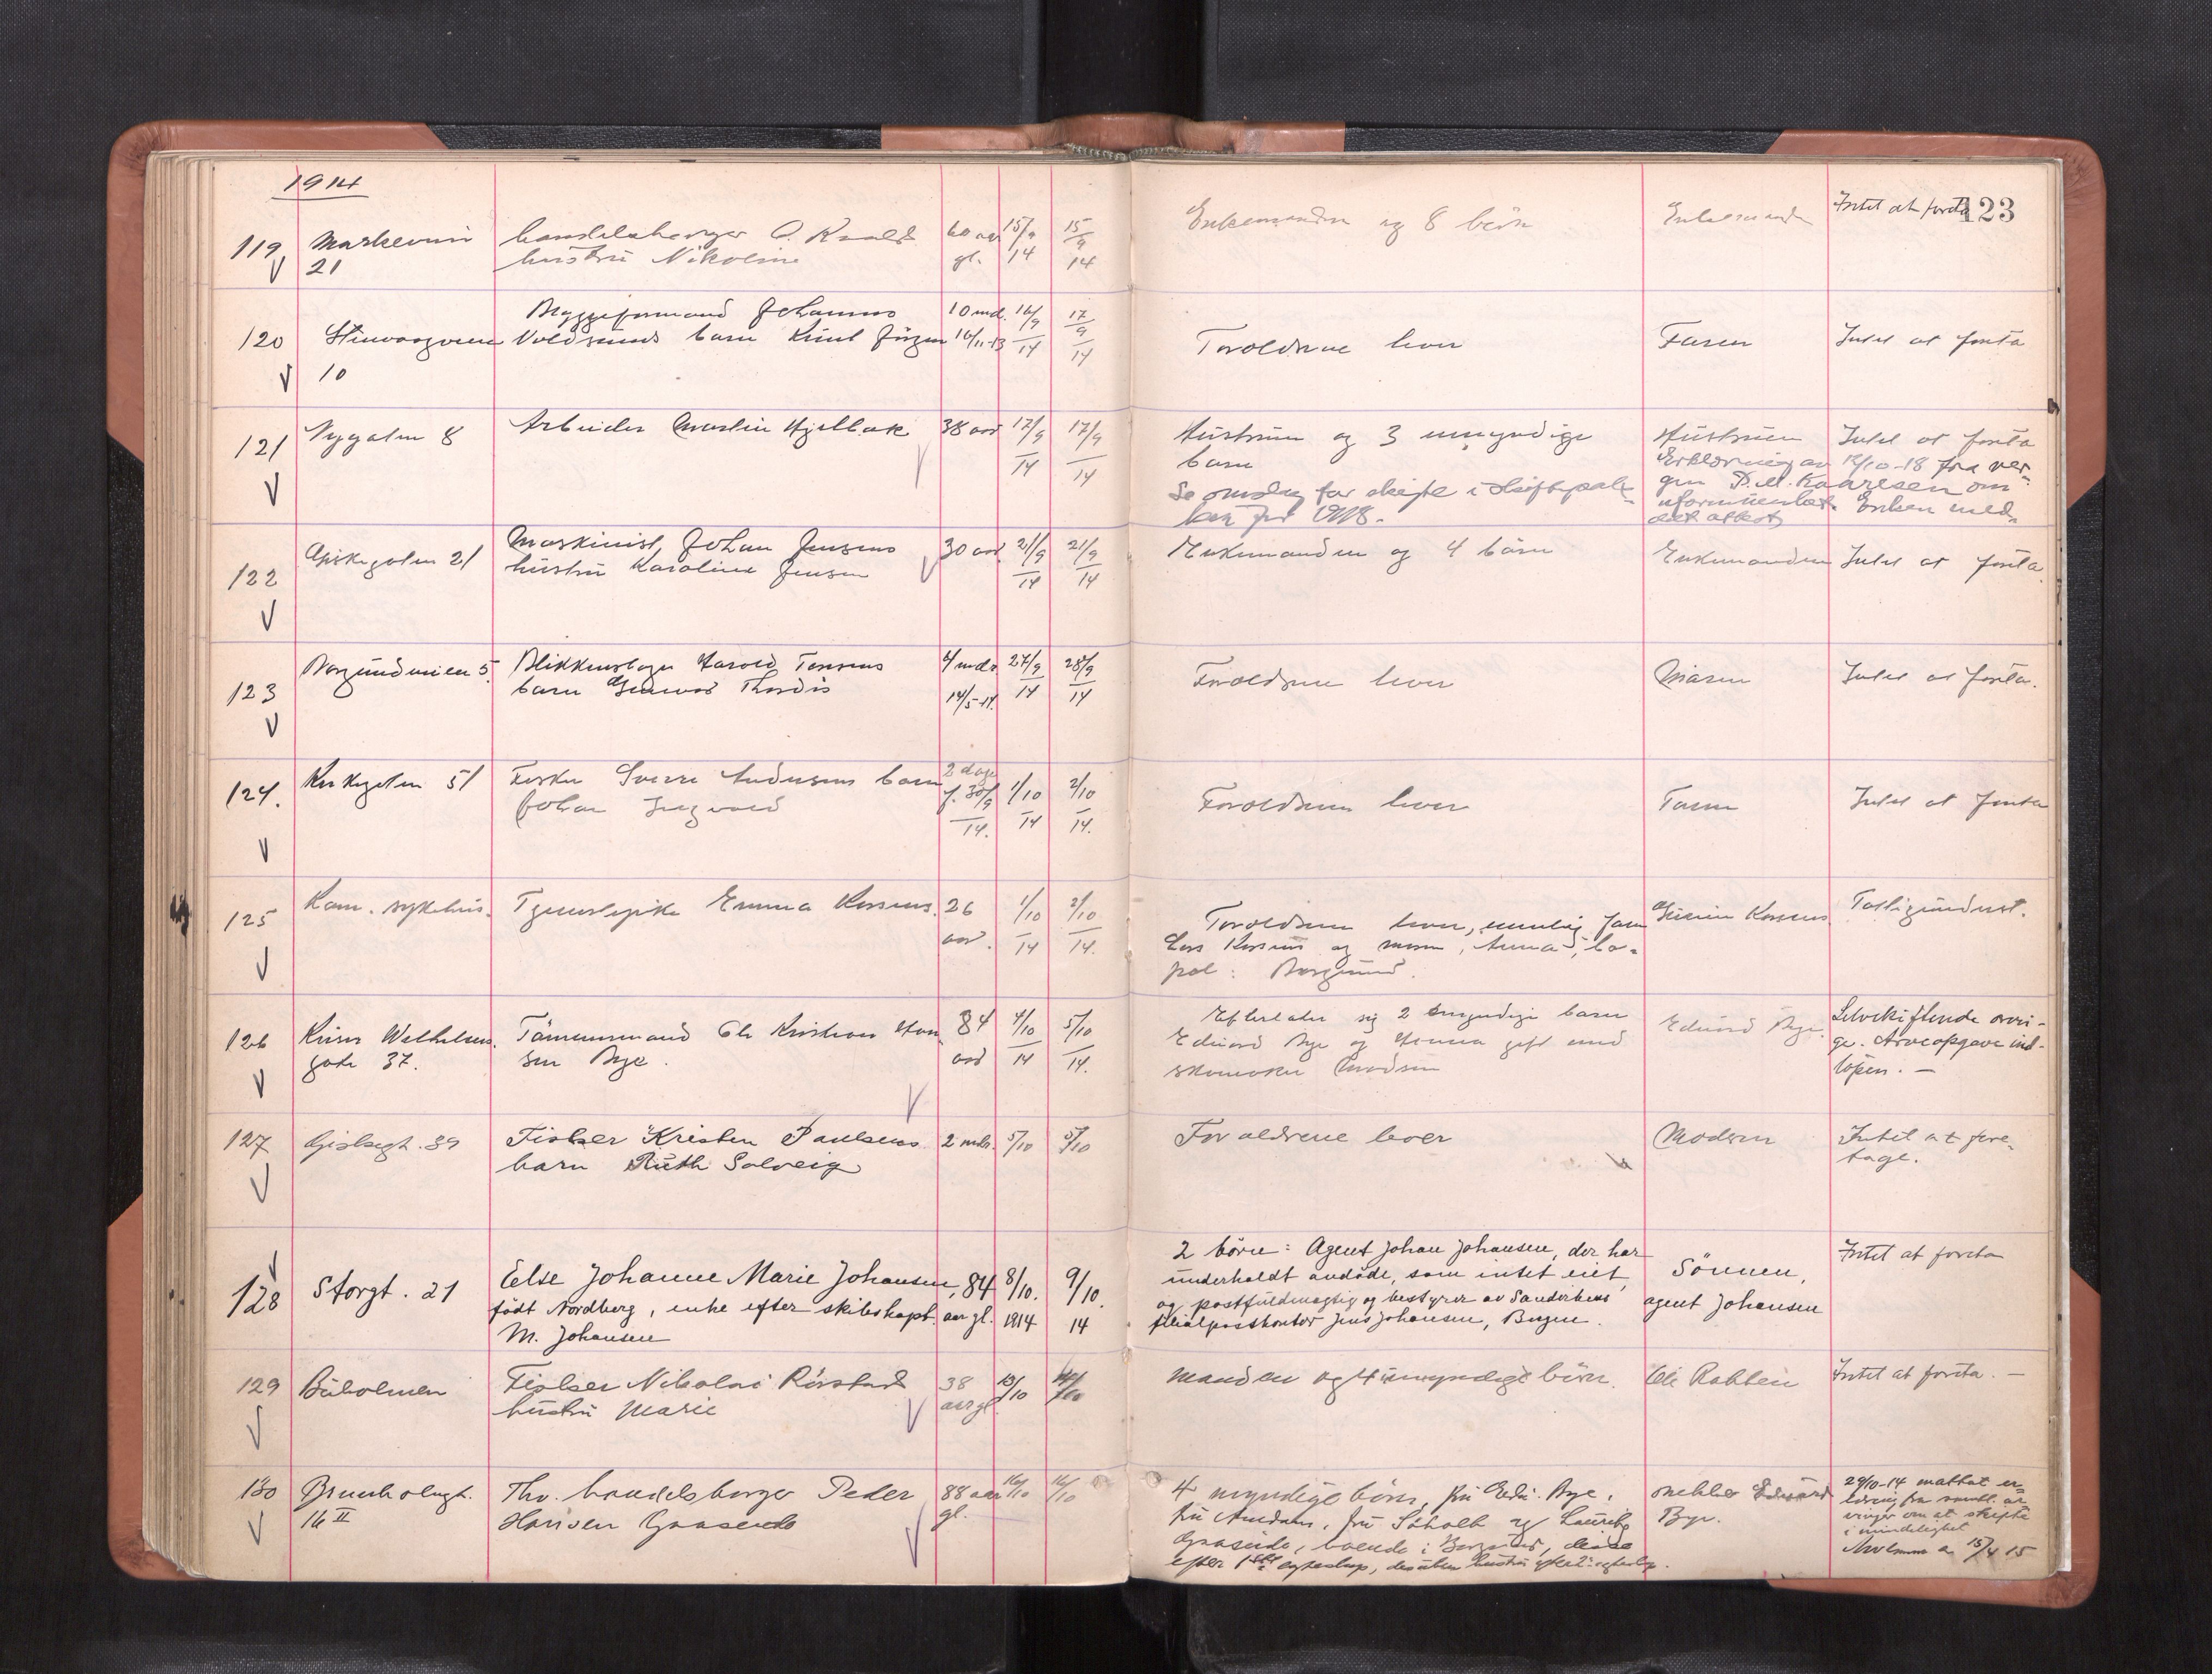 1914
123
119
21
handelsborger O.
hustru Nikoline
60 aar
gl.
15/9
14
15/9
14
Enkemanden og 8 börn
Enkemanden
Intet at foreta
120
10
Byggeformand Johannes
Voldsunds barn Knut Jörgen
10 md.
16/11-13
16/9
14
17/9
14
Foreldrene lever
Faren
Intet at foreta
121
Nygaten 8
Arbeider Martin
38 aar
17/9
14
17/9
14
Hustruen og 3 umyndige
barn
Se omslag for skifte i
Hustruen
Intet at foreta
Erklæring av 12/10-18 fra ver-
gen om
Enken med-
delt attest
122
Apotekergaten 21
Maskinist Johan Jensens
hustru Karoline Jensen
30 aar
21/9
14
21/9
14
Enkemanden og 4 börn
Enkemanden
Intet at foreta
123
Borgundveien 5.
Blikkenslager Harold
barn Gunvor Thordis
4 mdr.
14/5-14.
27/9
14
28/9
14
Foreldrene lever
Moren
Intet at foreta.
124.
Kirkegaten 51
Fisker Sverre Andersens barn
Johan Ingvald
2 dage
f. 30/9
14.
1/10
14
2/10
14.
Foreldrene lever
Faren
Intet at foreta
125
Kom. sykehus.
Tjenestepike Emma
26
aar.
1/10
14
2/10
14.
Foreldrene lever, nemlig faren
Lars og moren, Anna, bo-
pæl: Borgund.
Fattigunderst.
126
Keiser Wilhelms
gate 37.
Tömmermand Ole Kristian Han
sen Bye.
84
aar
4/10
14
5/10
14.
Efterlater sig 2 myndige barn
Edvard Bye og Hanna gift med
skomaker Madsen
Edvard Bye.
Selvskiftende arvin-
ge. Arveopgave ind-
löpen. —
127
Giskegt. 39
Fisker Kristen Paulsens
barn Ruth Solveig
2 mdr.
5/10
5/10
Forældrene lever
Modern
Intet at fore-
tage.
128
Storgt. 21
Else Johanne Marie Johansen,
födt Nordberg, enke efter skibskapt.
M. Johansen
84
aar gl.
8/10.
1914
9/10.
14
2 börn: Agent Johan Johansen, der har
underholdt avdöde, som intet eiet
og postfuldmægtig og bestyrer av Sandvikens
filialpostkontor Jens Johansen, Bergen.
Sönnen,
agent Johansen
Intet at foreta
129
Buholmen
Fisker Nikolai Rörstad
hustru Marie
38
aar gl
13/10
14/10
Manden og 4 umyndige börn.
Ole
Intet at foreta. —
130
Brunholmgt.
16 II
Fhv. handelsborger Peder
Hansen Gaaseide
88 aar
gl.
16/10
16/10
4 myndige börn, fru Edv. Bye,
fru Amdam, fru Søholt og Laurits
Gaaseide, boende i Borgund, disse
efter 1ste egteskap, desuten hustru efter 2. egteskap.
snekker Edvard
Bye.
29/10-14 mottat er-
klæring fra samtl. ar
vinger om at skifte
i mindelighet
15/4 15